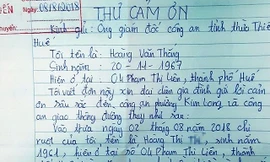 ĐẾN
Ngày: 08/8/2018
Chuyển:
THƯ CẢM ƠN
Kính gửi: Ông giám đốc công an tỉnh Thừa Thiên
Huế
Tôi tên là: Hoàng Văn Thắng
Sinh năm: 20 - 11 - 1967
Hiện ở tại: 04 Phạm Thị Liên, thành phố Huế
Tôi viết đơn này xin đại diện gia đình gửi lời cảm
ơn sâu sắc đến, công an phường Kim Long và công
an giao thông đường thủy như sau:
Vào trưa ngày 02 tháng 08 năm 2018 chị
ruột của tôi tên là Hoàng Thị Thí, sinh năm
1961, hiện ở tại 04 Phạm Thị Liên, thành